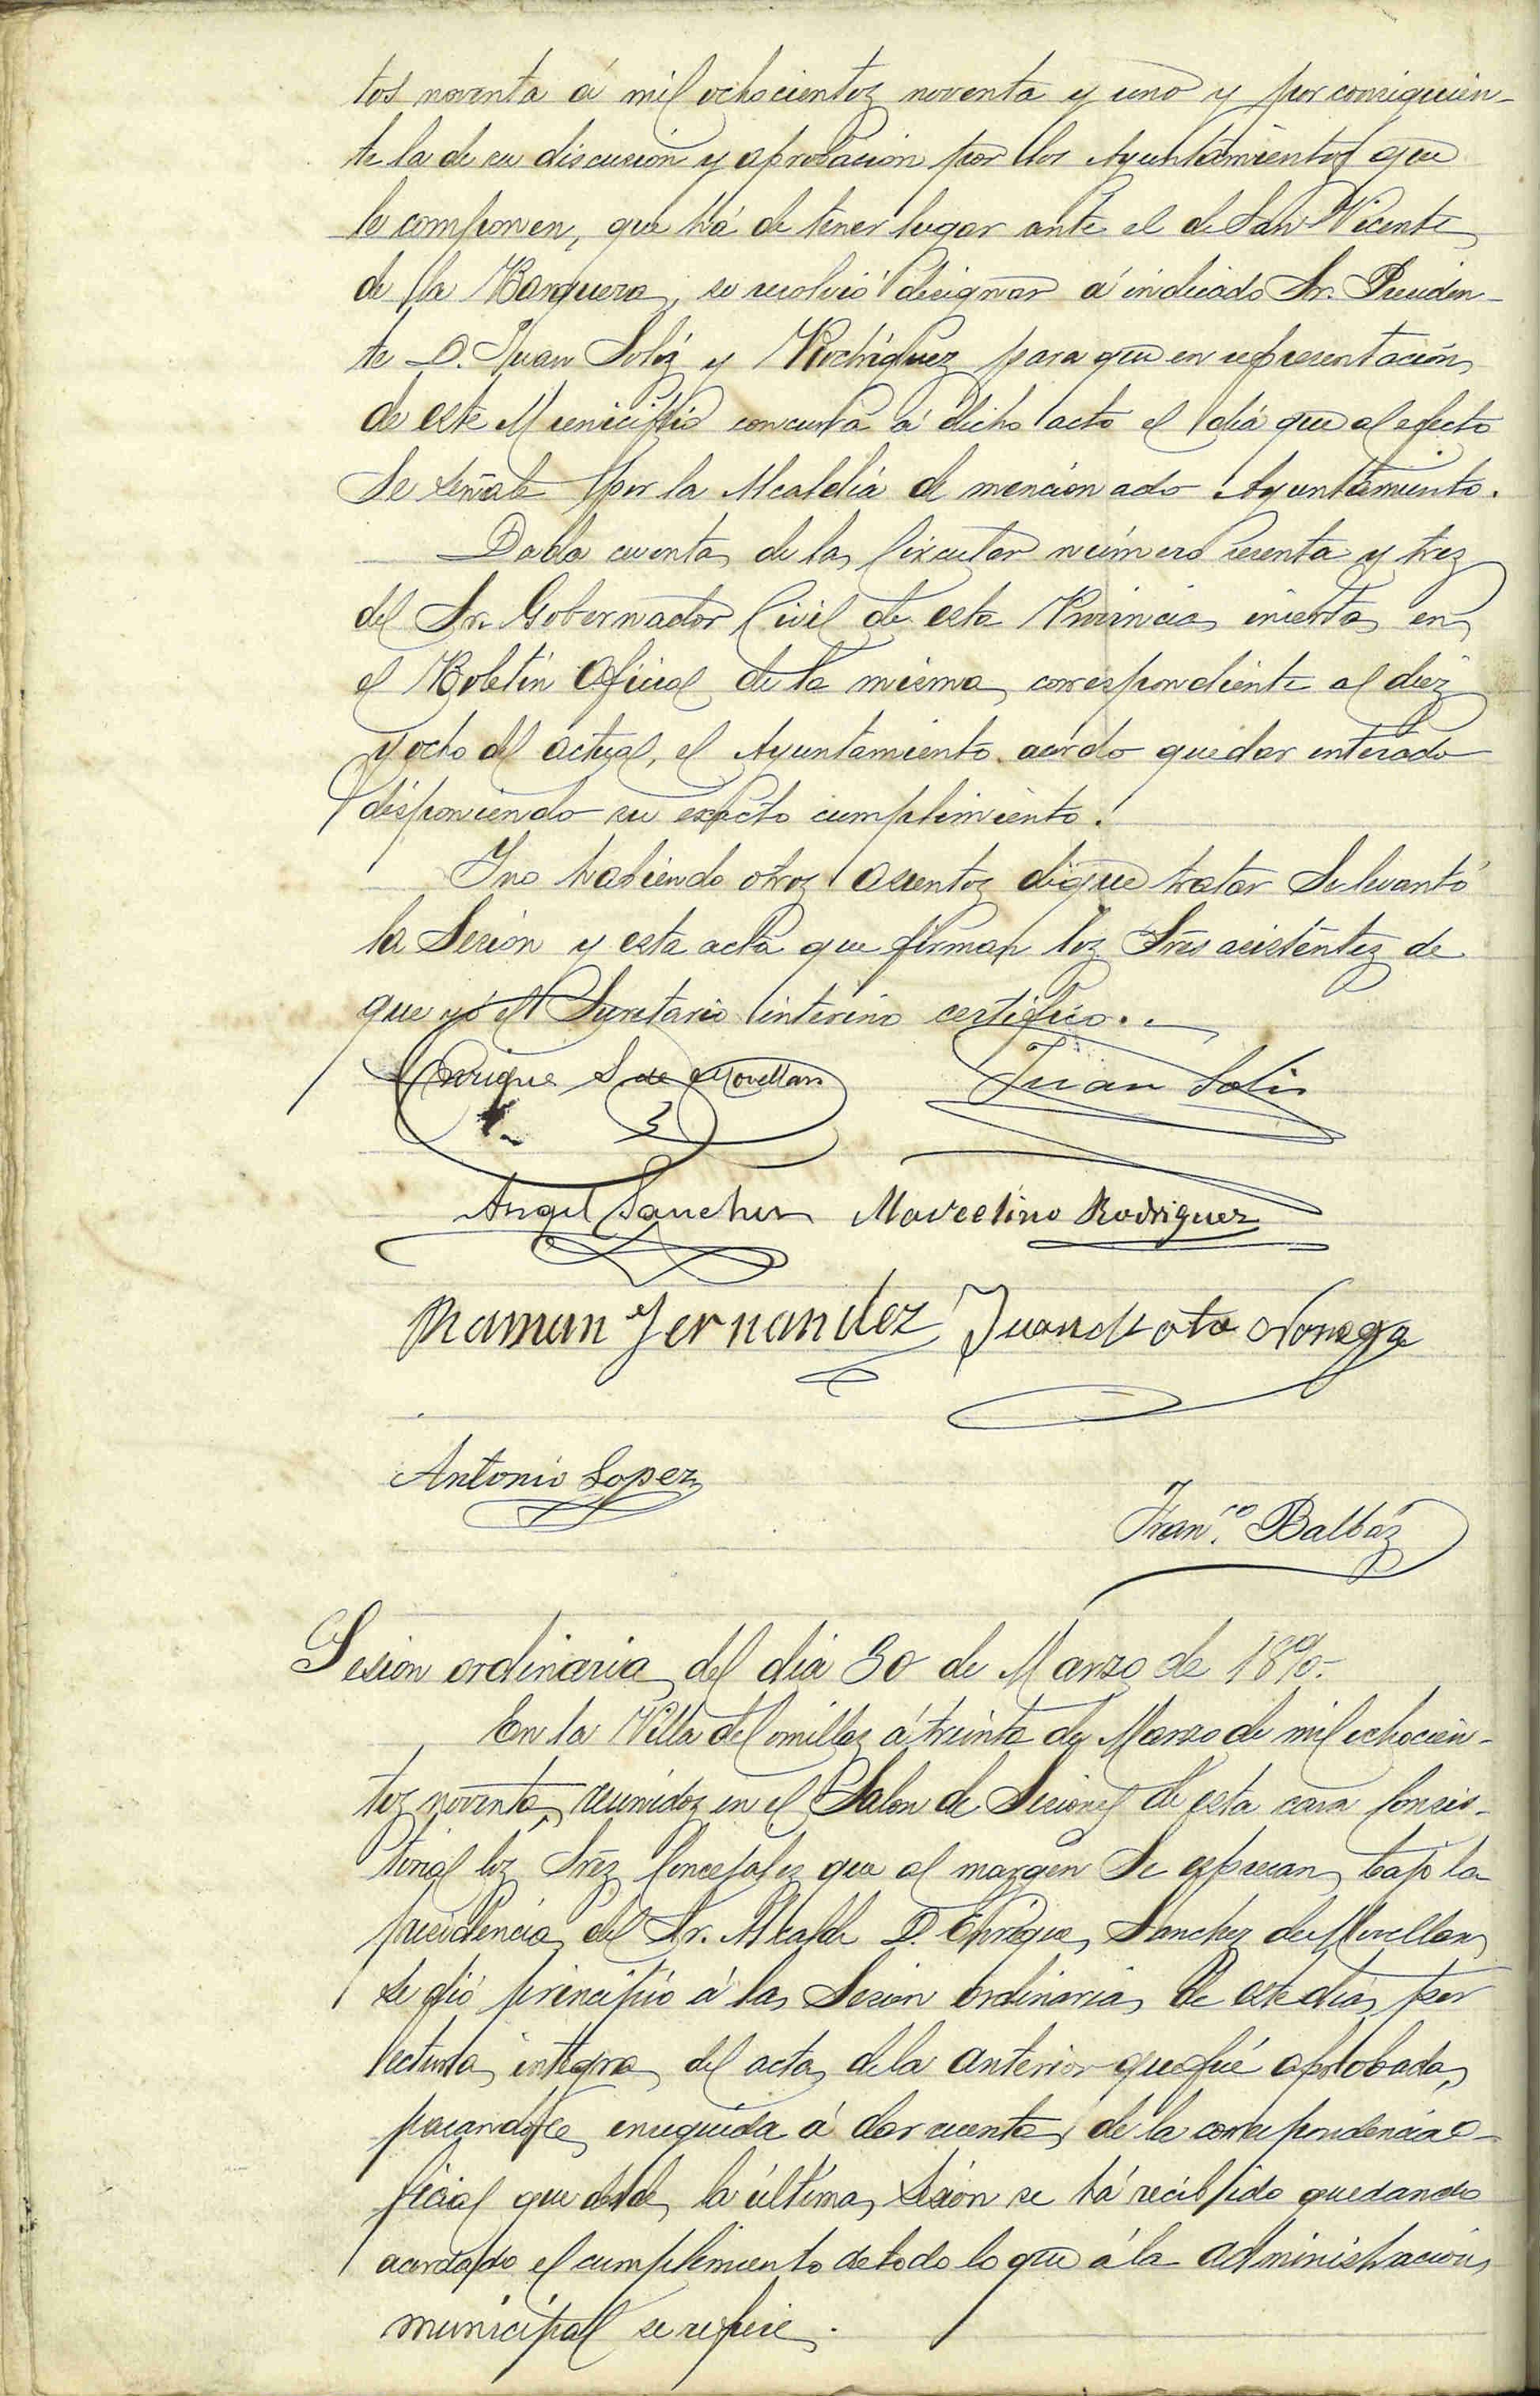 tos noventa á mil ochocientoz noventa y uno y por consiguien-
te la de su discusión y aprobacion por los Ayuntamientos que
le componen, que há de tener lugar ante el de San Vicente
de la Barquera, se resolvió designar á indicado Sr. Presiden-
te D. Juan Solíz y Rodríguez para que en representación
de este Municipio concurra á dicho acto el día que al efecto
se señale por la Alcaldía de mencionado Ayuntamiento.
Dada cuenta de la Circular número sesenta y trez
del Sr. Gobernador Civil de esta Provincia inserta en
el Boletín Oficial de la misma, correspondiente al diéz
y ocho del actual, el Ayuntamiento acordo quedar enterado
disponiendo su exacto cumplimiento.
Y no habiendo otroz asuntoz de que tratar se levantó
la Sesión y esta acta que firman loz Sres asistentez de
que yó el Secretario interino certifico.
Enrique S. de Movellan Juan Solis
Angel Sanchez Marcelino Rodriguez
Ramun Fernandez Juan de Cota Noriega
Antonio Lopez
Fran.co Balbáz
Sesion ordinaria del día 30 de Marzo de 1890.
En la Villa de Comillaz á treinta de Marzo de mil ochocien-
toz noventa, reunidoz en el Salon de Sesiones de esta casa Consis-
torial loz Srez Concejalez que al margen se expresan, bajo la
presidencia del Sr. Alcalde D. Enrique Sanchez de Movellan
se dió principio á la Sesión ordinaria de este día, por
lectura integra del acta de la anterior que fué aprobada,
pasandose enseguida á dar cuenta de la correspondencia o-
ficial que desde la última sesión se há recibido quedando
acordado el cumplimiento de todo lo que á la administración
municipal se refiere.